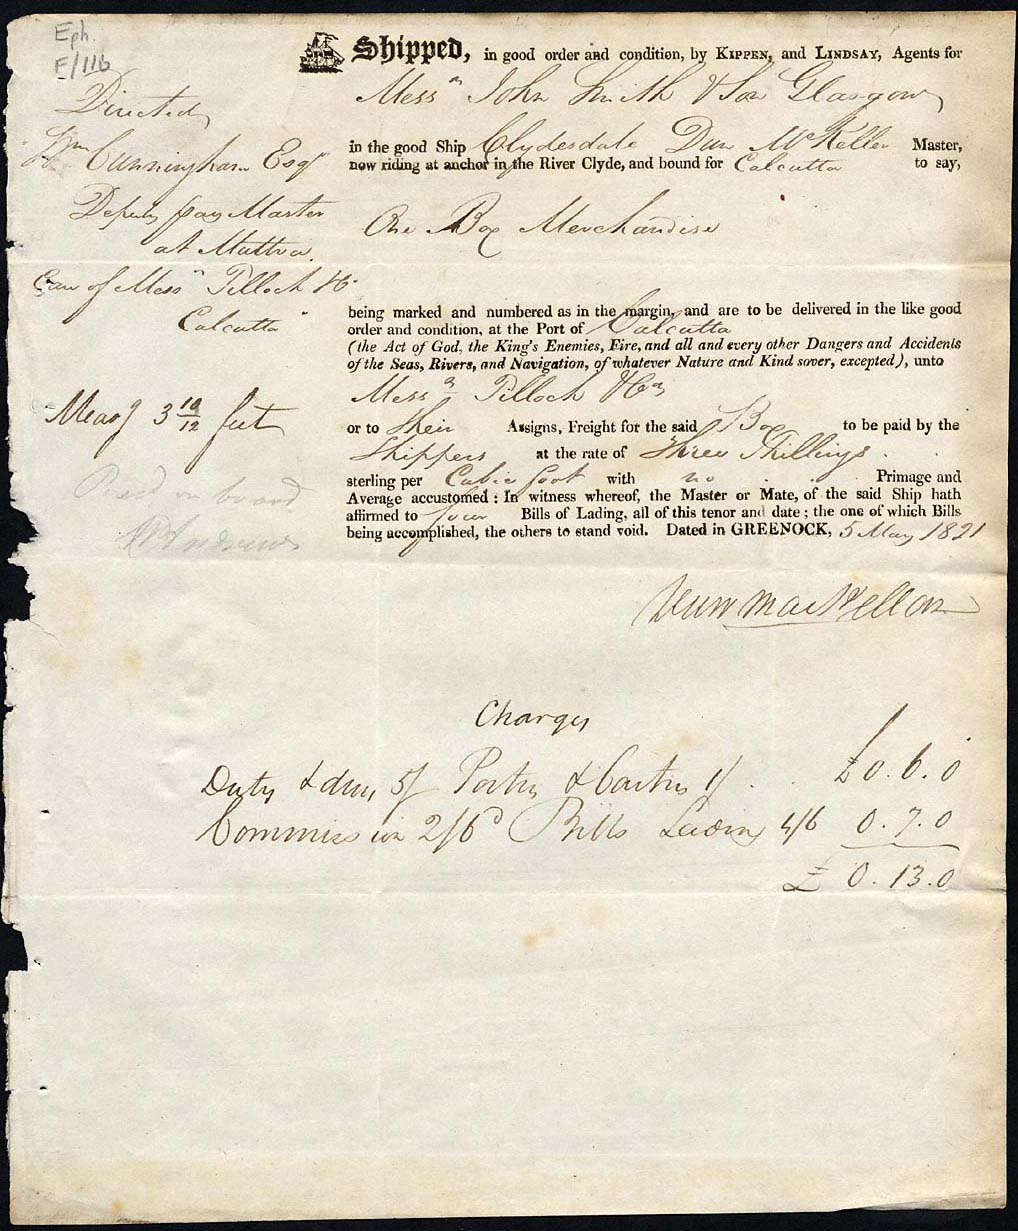 Eph.
E/116
Directed
Wm Cunningham Esqr
Deputy pay Master
at Muttra.
Care of Messrs Tulloch & Co
Calcutta
Measg 3 10/12 feet
Recd on board
Andrews
Shipped, in good order and condition, by KIPPEN, and LINDSAY, Agents for
Messrs John Smith & Son Glasgow
in the good Ship Clydesdale Dun McKellar Master,
now riding at anchor in the River Clyde, and bound for Calcutta to say,
One Box Merchandise
being marked and numbered as in the margin, and are to be delivered in the like good
order and condition, at the Port of Calcutta
(the Act of God, the King's Enemies, Fire, and all and every other Dangers and Accidents
of the Seas, Rivers, and Navigation, of whatever Nature and Kind sover, excepted), unto
Messrs Tulloch & Co
or to their Assigns, Freight for the said Box to be paid by the
Shippers at the rate of Three Shillings
sterling per Cubic foot with no Primage and
Average accustomed: In witness whereof, the Master or Mate, of the said Ship hath
affirmed to four Bills of Lading, all of this tenor and date; the one of which Bills
being accomplished, the others to stand void. Dated in GREENOCK, 5 May 1821
Dun MacKellar
Charges
Duty & dues 5/ Porty & Carty 1/ . . £0.6.0
Commission 2/6d Bills Lading 4/6 0.7.0
£ 0.13.0